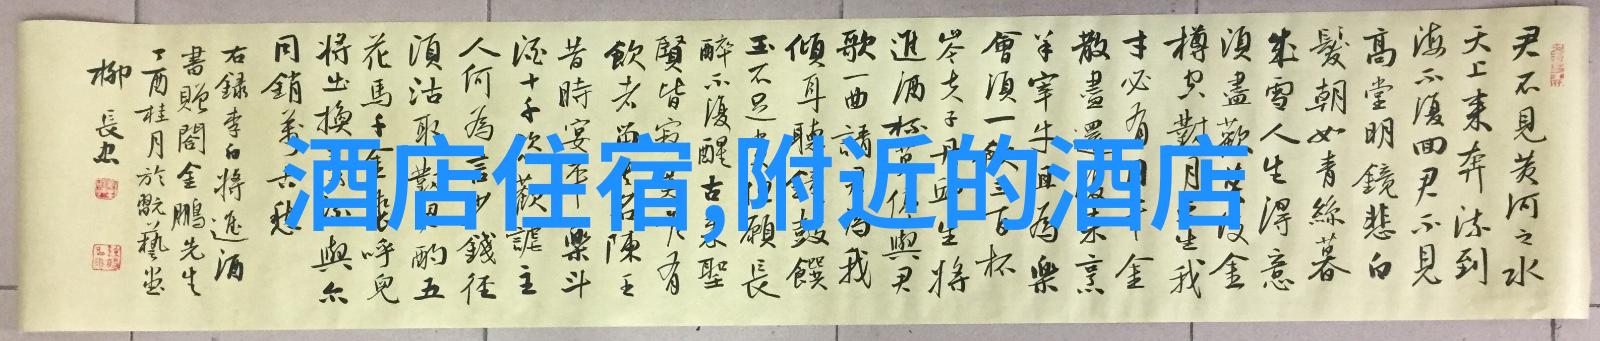 君不見黃河之水
天上來奔流到
海不復回君不見
高堂明鏡悲白
髮朝如青絲暮
成雪人生得意
須盡歡莫使金
樽空對月天生我
才必有用千金
散盡還復來烹
羊宰牛且為樂
會須一飲三百杯
岑夫子丹丘生將
進酒杯莫停與君
歌一曲請君為我
傾耳聽鐘鼓饌
玉不足貴但願長
醉不復醒古來聖
賢皆寂寞惟有
飲者留其名陳王
昔時宴平樂斗
酒十千恣歡謔主
人何為言少錢徑
須沽取對君酌五
花馬千金裘呼兒
將出換美酒與尔
同銷萬古愁
右録李白將進酒
書贈閻金鵬先生
丁酉桂月於翫藝堂
柳長忠
酒店住宿,附近的酒店